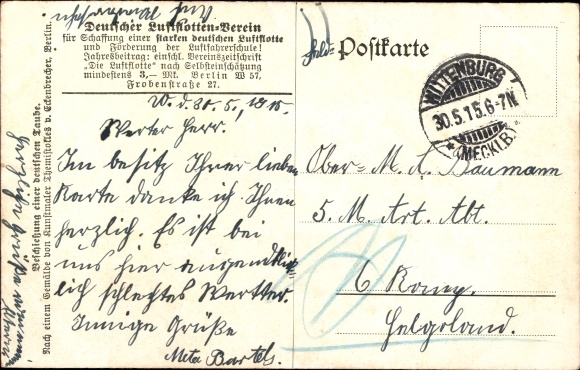 Deutscher Luftflotten-Verein
für Schaffung einer starken deutschen Luftflotte
und Förderung der Luftfahrerschule!
Jahresbeitrag: einschl. Vereinszeitschrift
„Die Luftflotte“ nach Selbsteinschätzung
mindestens 3,— Mk. Berlin W 57,
Frobenstraße 27.
W. d. 30. 5. 1915.
Werter Herr.
Im besitz Ihrer lieben
Karte danke ich Ihnen
herzlich. Es ist bei
uns hier augenblick-
lich schlechtes Wertter.
Innige Grüße
Meta Bartels.
Feld-Postkarte
WITTENBURG
30.5.15.6-7N.
* (MECKLB) *
Ober-M. A. Baumann
5. M. Art. Abt.
6 Komp.
Helgoland.
Beschießung einer deutschen Taube.
Nach einem Gemälde von Kunstmaler Themistokles v. Eckenbrecher, Berlin.
Herzliche Grüße